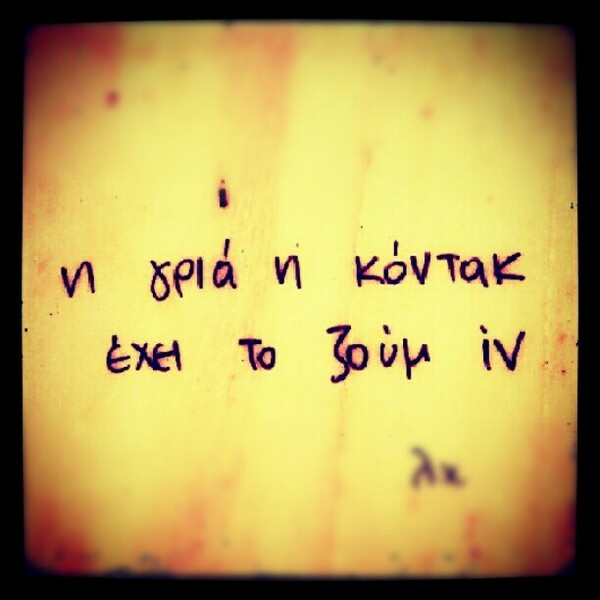 i
η γριά η κόντακ
έχει το ζούμ ίν
λκ